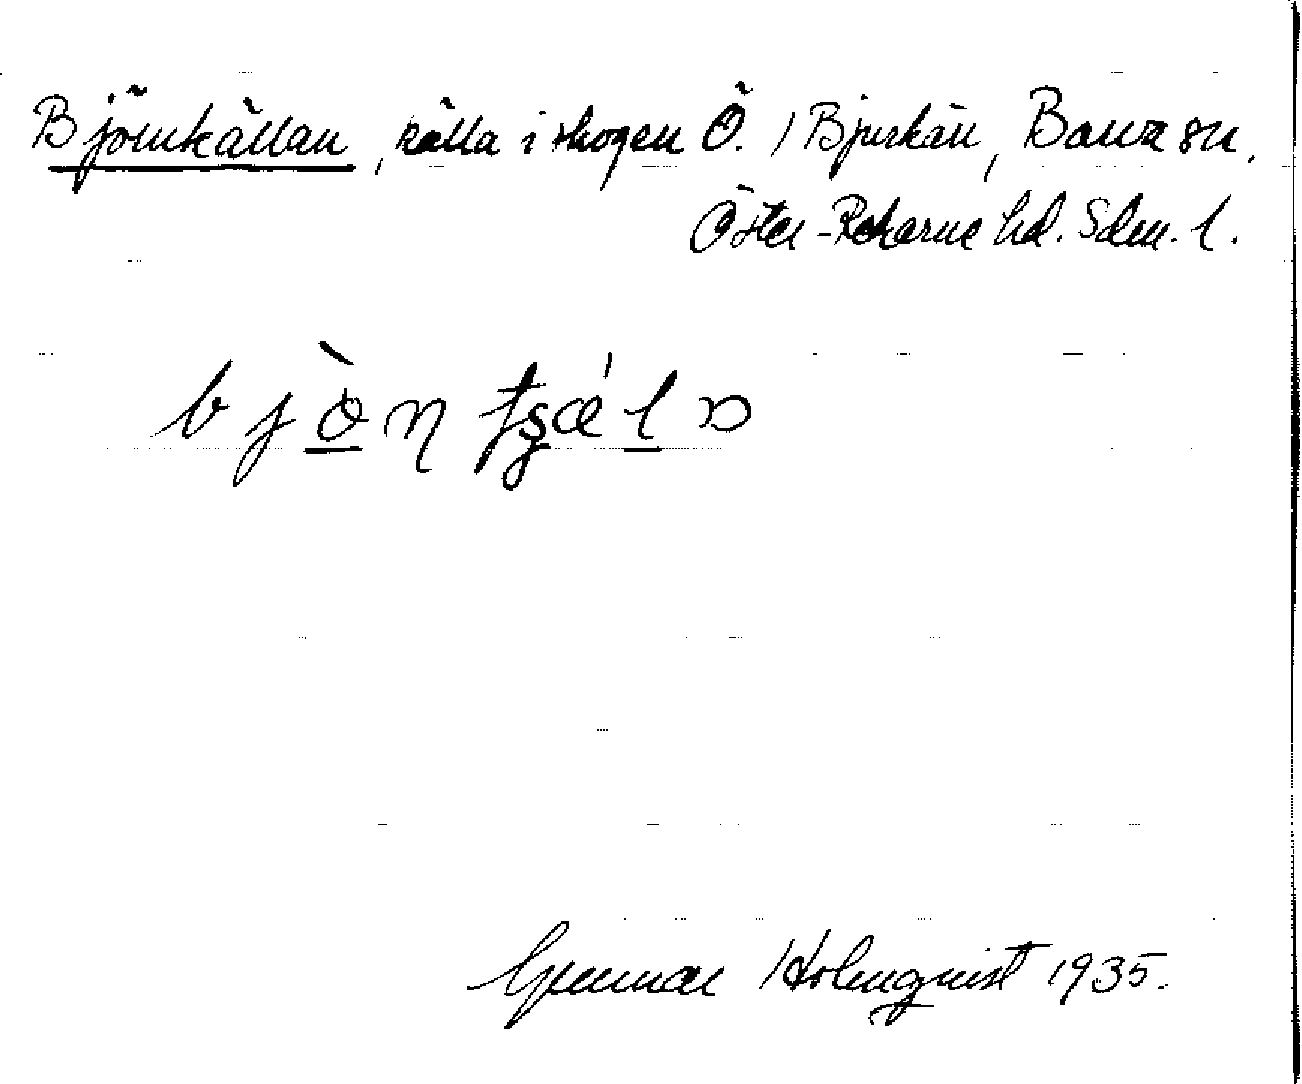 Björnkällan, källa i skogen Ö. / Bjurkärr, Barva sn,
Öster-Rekarne hd. Sdm. l.
bjö̀ṇtʂǽlɒ
Gunnar Holmqvist 1935.